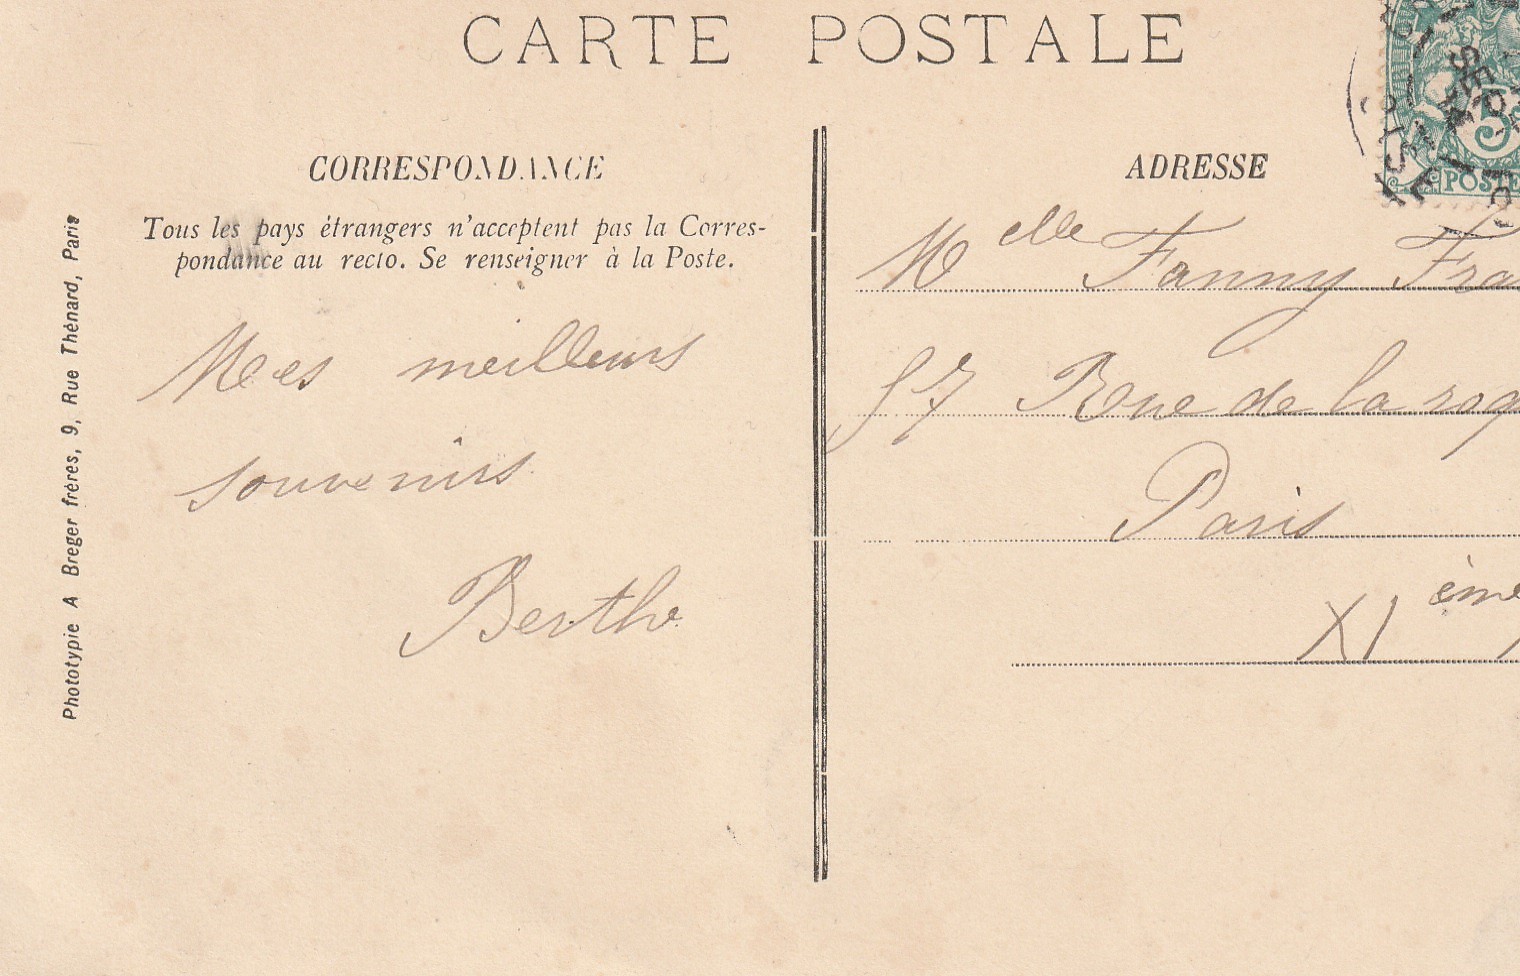 CARTE POSTALE
CORRESPONDANCE
Tous les pays étrangers n'acceptent pas la Corres-
pondance au recto. Se renseigner à la Poste.
Mes meilleurs
souvenirs
Berthe
Phototypie A Breger frères, 9, Rue Thénard, Paris
ADRESSE
Melle Fanny Fra
57 Rue de la roq
Paris
XI ème
5
POSTE
SEPT